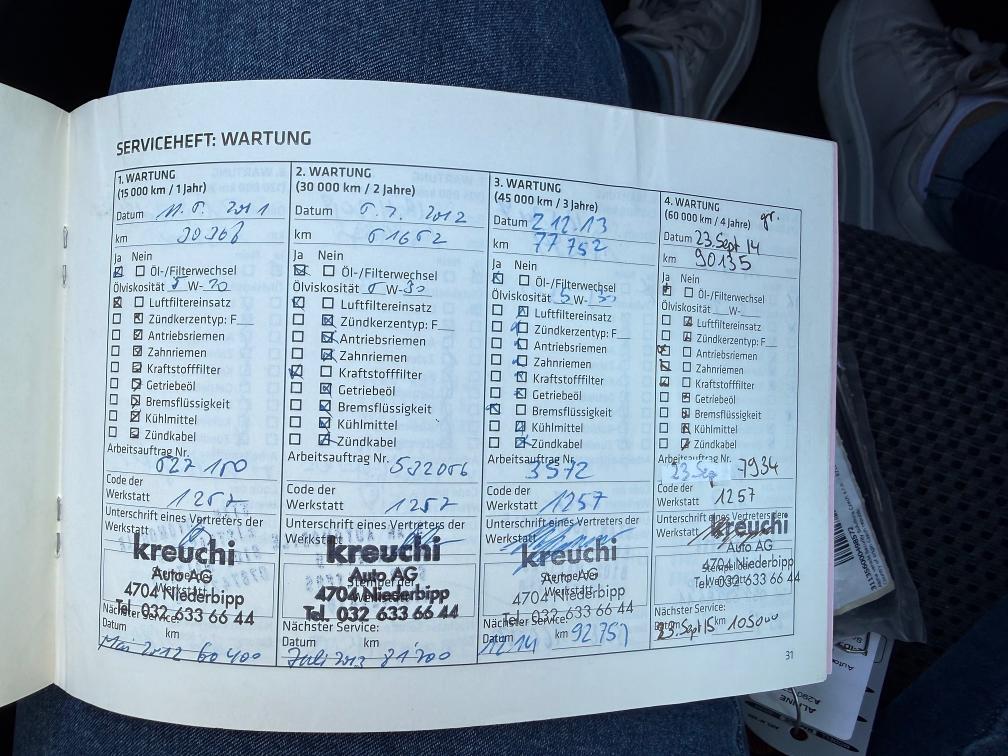 SERVICEHEFT: WARTUNG
1. WARTUNG
(15 000 km / 1 Jahr)
Datum 2011
km 30368
Ja Nein
Öl-/Filterwechsel
Ölviskosität 5 W-30
Luftfiltereinsatz
Zündkerzentyp: F__
Antriebsriemen
Zahnriemen
Kraftstofffilter
Getriebeöl
Bremsflüssigkeit
Kühlmittel
Zündkabel
Arbeitsauftrag Nr.
627 100
Code der
Werkstatt 1257
Unterschrift eines Vertreters der
Werkstatt
kreuchi
Auto AG
4704 Niederbipp
Tel. 032 633 66 44
Nächster Service:
Datum km
Mai 2012 60 400
2. WARTUNG
(30 000 km / 2 Jahre)
Datum 6.7. 2012
km 61652
Ja Nein
Öl-/Filterwechsel
Ölviskosität W-30
Luftfiltereinsatz
Zündkerzentyp: F__
Antriebsriemen
Zahnriemen
Kraftstofffilter
Getriebeöl
Bremsflüssigkeit
Kühlmittel
Zündkabel
Arbeitsauftrag Nr. 532066
Code der
Werkstatt 1257
Unterschrift eines Vertreters der
Werkstatt
kreuchi
Auto AG
Stempel der
4704 Niederbipp
Tel. 032 633 66 44
Nächster Service:
Datum km
Juli 2013 81'700
3. WARTUNG
(45 000 km / 3 Jahre)
Datum 2 12.13
km 77 752
Ja Nein
Öl-/Filterwechsel
Ölviskosität 5 W-30
Luftfiltereinsatz
Zündkerzentyp: F__
Antriebsriemen
Zahnriemen
Kraftstofffilter
Getriebeöl
Bremsflüssigkeit
Kühlmittel
Zündkabel
Arbeitsauftrag Nr.
3572
Code der
Werkstatt 1257
Unterschrift eines Vertreters der
Werkstatt
kreuchi
Auto AG
4704 Niederbipp
Tel. 032 633 66 44
Nächster Service:
Datum km 92751
12.14
4. WARTUNG gr.
(60 000 km / 4 Jahre)
Datum 23.Sept 14
km 90135
Ja Nein
Öl-/Filterwechsel
Ölviskosität __W-__
Luftfiltereinsatz
Zündkerzentyp: F__
Antriebsriemen
Zahnriemen
Kraftstofffilter
Getriebeöl
Bremsflüssigkeit
Kühlmittel
Zündkabel
Arbeitsauftrag Nr.
23.Sep 7934
Code der
Werkstatt 1257
Unterschrift eines Vertreters der
Werkstatt
kreuchi
Auto AG
4704 Niederbipp
Tel. 032 633 66 44
Nächster Service:
Datum km
23.Sept 15 105000
31